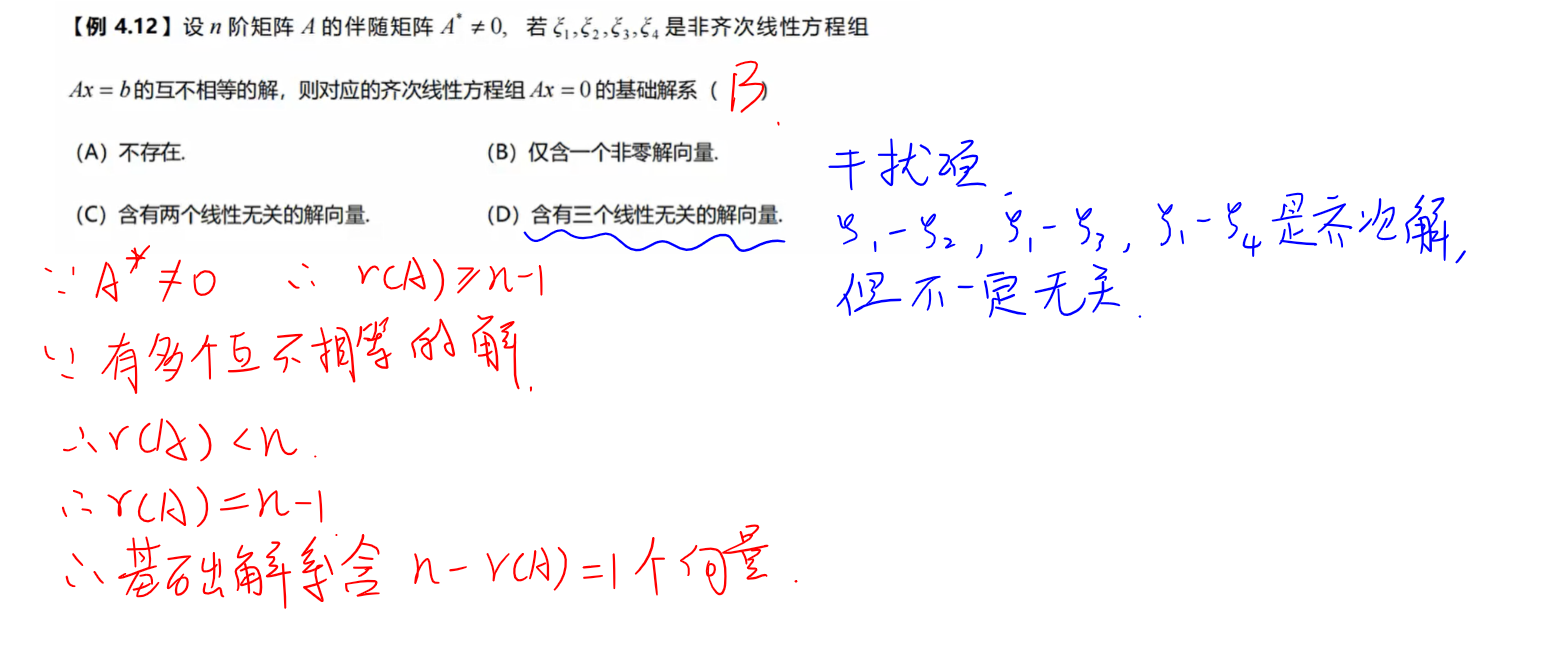 【例 4.12】设 n 阶矩阵 A 的伴随矩阵 A* ≠ 0, 若 ξ₁,ξ₂,ξ₃,ξ₄ 是非齐次线性方程组
Ax = b 的互不相等的解，则对应的齐次线性方程组 Ax = 0 的基础解系（ B ）.
（A）不存在.
（B）仅含一个非零解向量.
（C）含有两个线性无关的解向量.
（D）含有三个线性无关的解向量.
干扰项.
ξ₁-ξ₂, ξ₁-ξ₃, ξ₁-ξ₄ 是齐次解,
但不一定无关.
∵ A* ≠ 0 ∴ r(A) ≥ n-1
∵ 有多个互不相等的解.
∴ r(A) < n.
∴ r(A) = n-1
∴ 基础解系含 n - r(A) = 1 个向量.